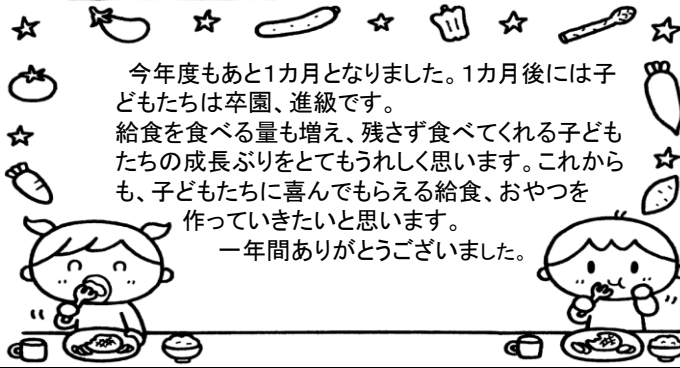 今年度もあと1カ月となりました。1カ月後には子
どもたちは卒園、進級です。
給食を食べる量も増え、残さず食べてくれる子ども
たちの成長ぶりをとてもうれしく思います。これから
も、子どもたちに喜んでもらえる給食、おやつを
作っていきたいと思います。
一年間ありがとうございました。